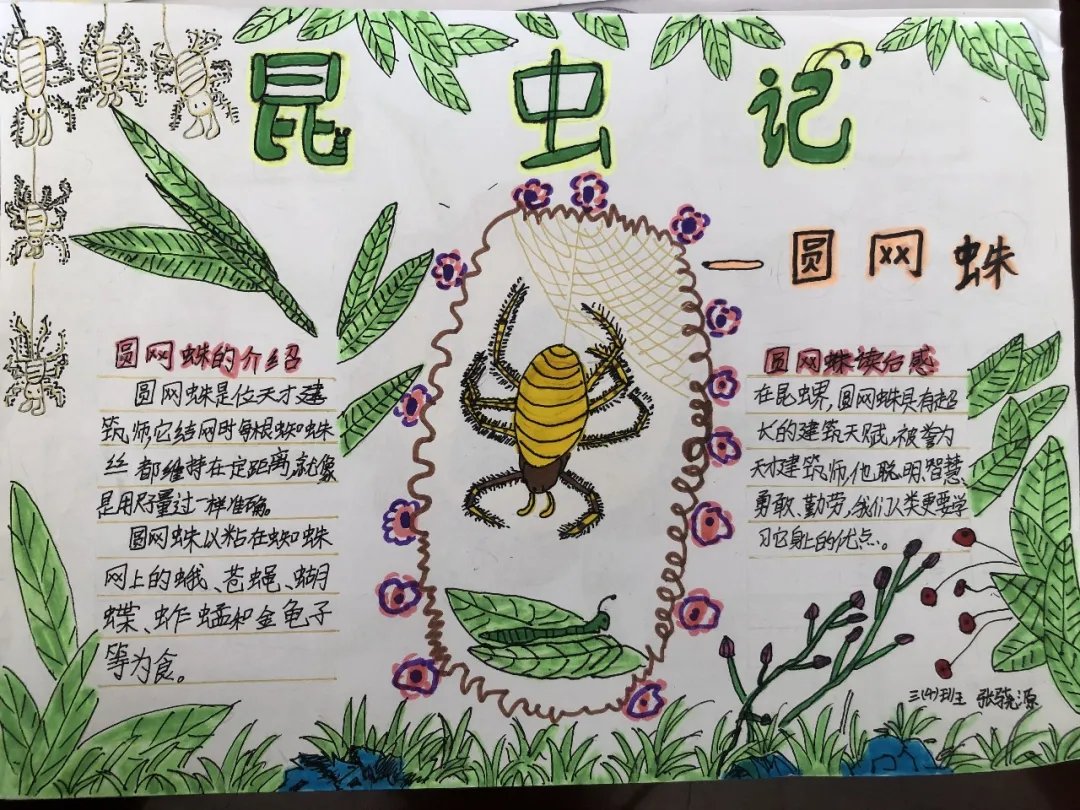 昆虫记
—圆网蛛
圆网蛛的介绍
圆网蛛是位天才建
筑师,它结网时每根蜘蛛
丝都维持在定距离,就像
是用尺子量过一样准确。
圆网蛛以粘在蜘蛛
网上的蛾、苍蝇、蝴
蝶、蚱蜢和金龟子
等为食。
圆网蛛读后感
在昆虫界,圆网蛛具有超
长的建筑天赋,被誉为
天才建筑师,他聪明、智慧、
勇敢、勤劳,我们人类更要学
习它身上的优点。
三(4)班 张骁源